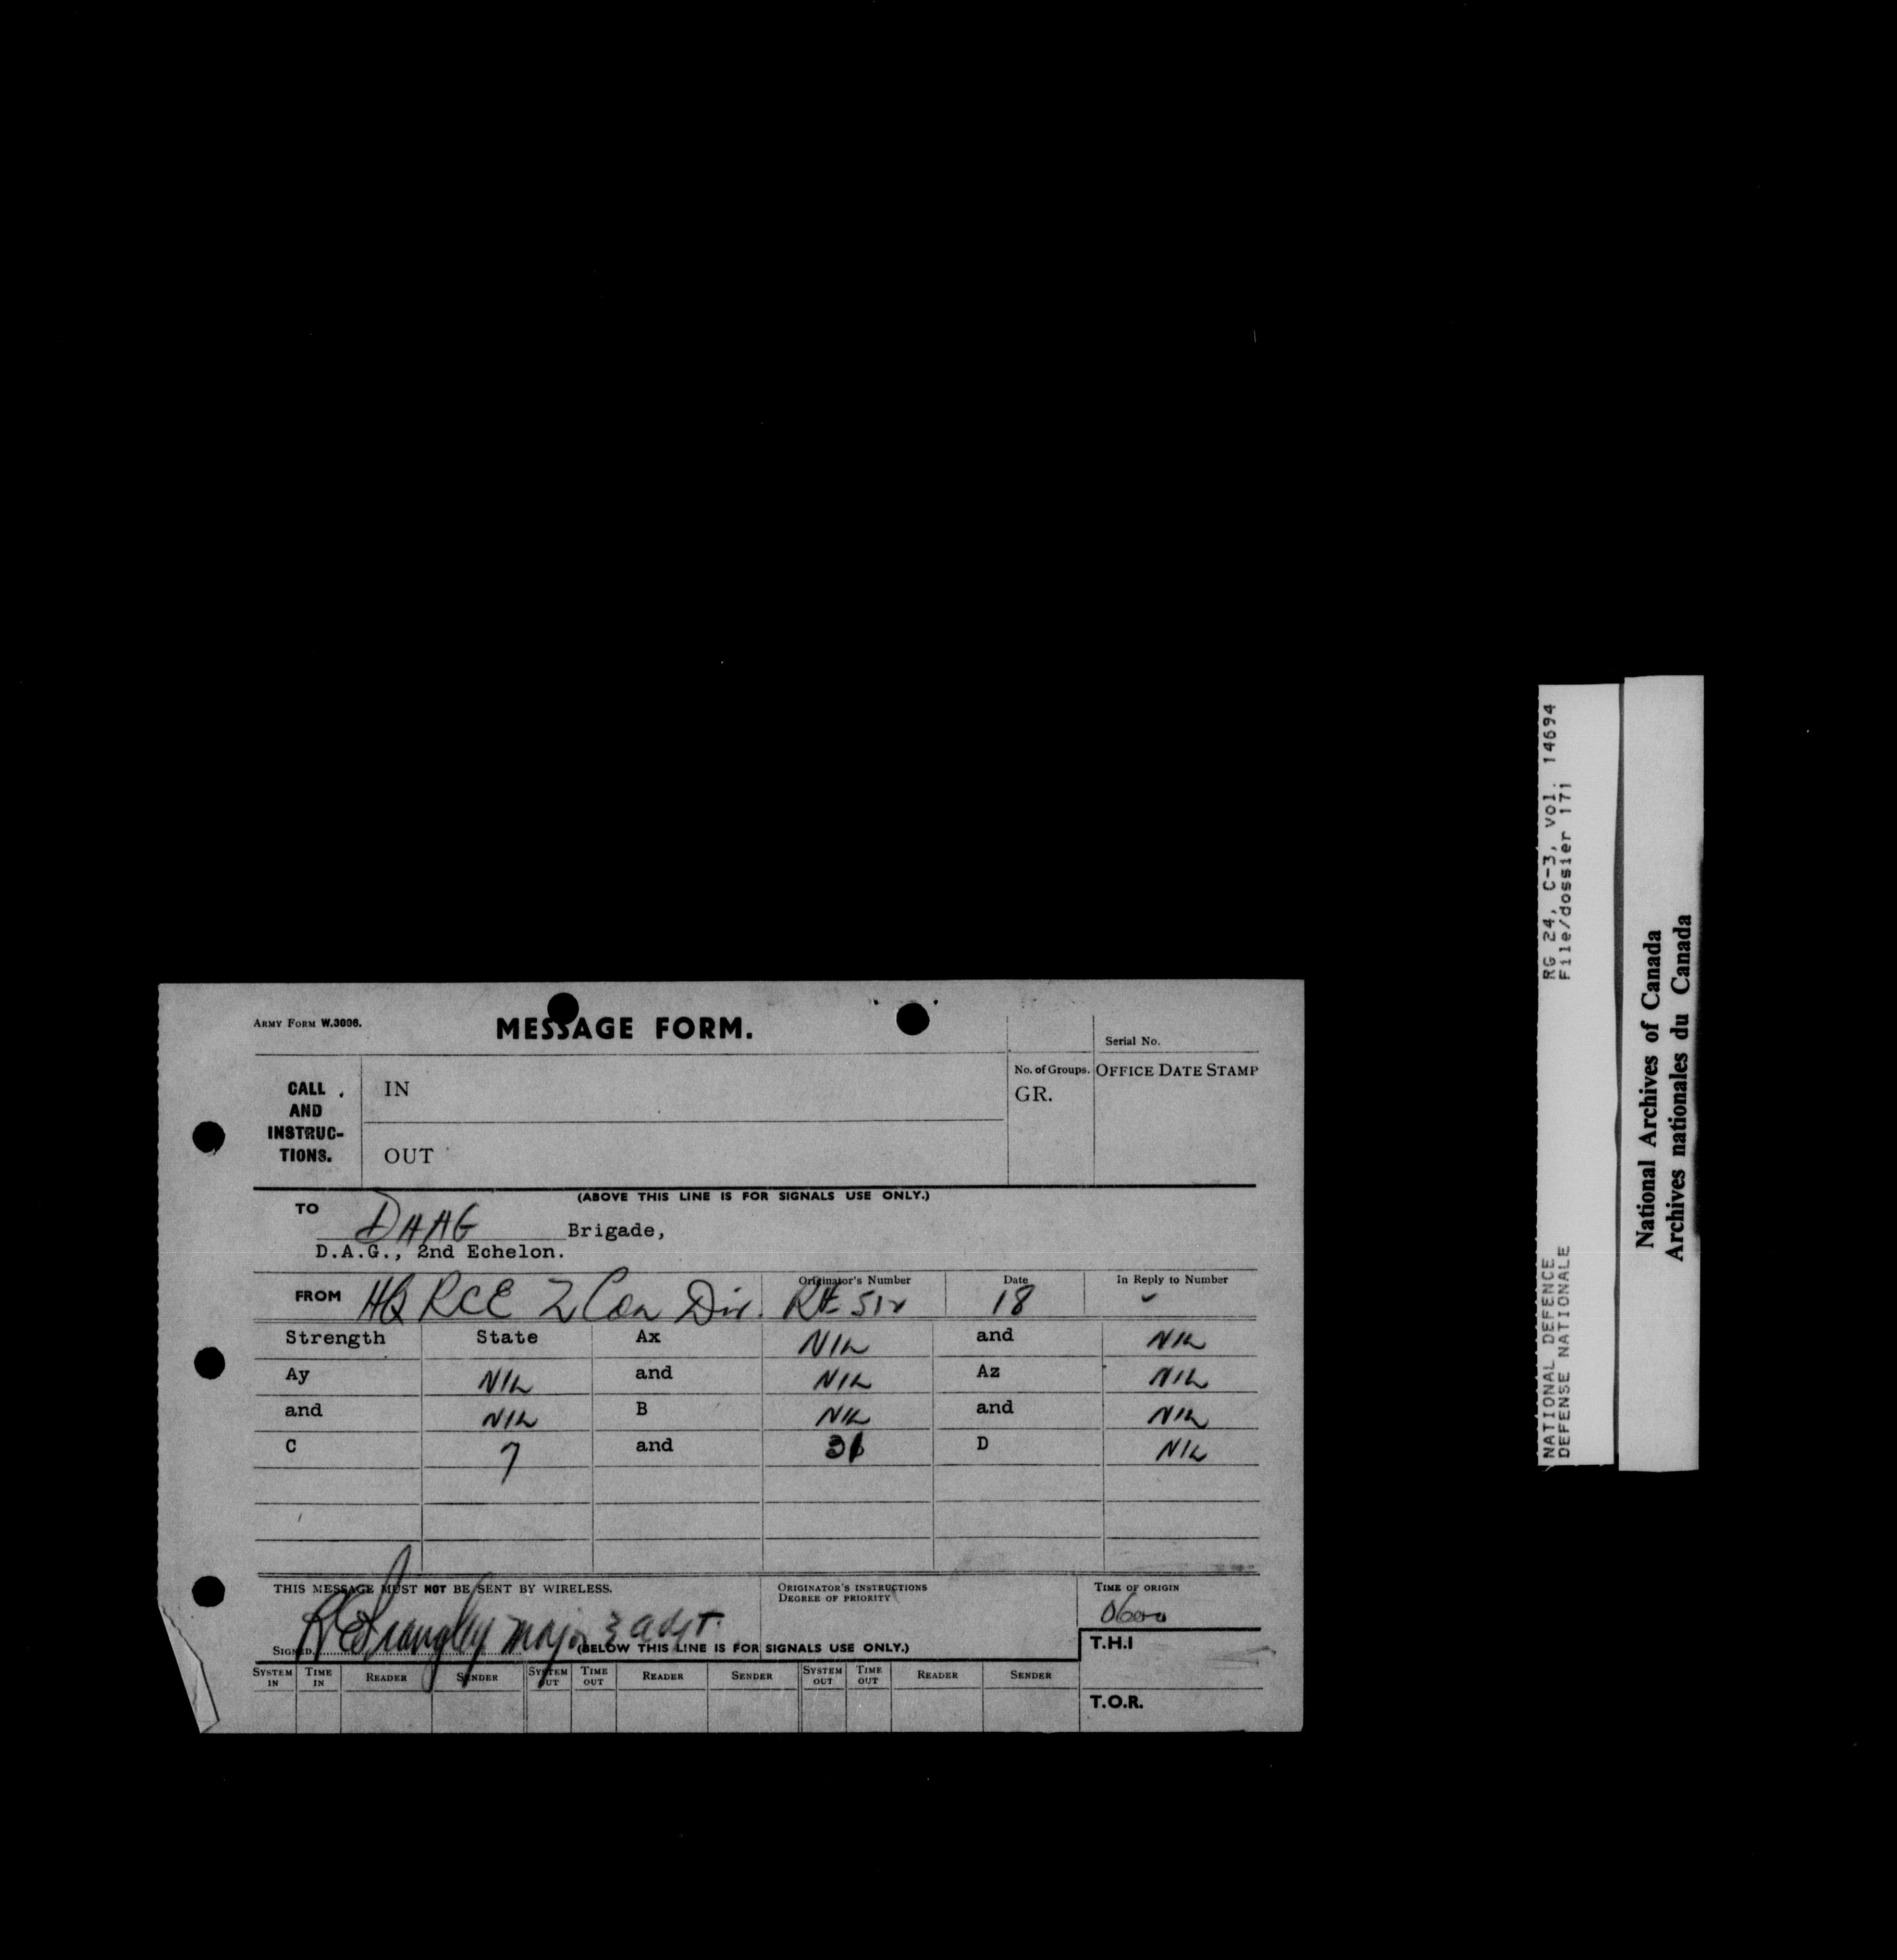 ARMY FORM W.3006.
MESSAGE FORM.
Serial No.
CALL AND INSTRUC-TIONS.
IN
No. of Groups.
GR.
OFFICE DATE STAMP
OUT
(ABOVE THIS LINE IS FOR SIGNALS USE ONLY.)
TO
DAAG Brigade,
D.A.G., 2nd Echelon.
FROM HQ RCE 2 Can Div. Originator's Number Date 18 In Reply to Number
Strength State Ax NIL and NIL
Ay NIL and NIL Az NIL
and NIL B NIL and NIL
C 7 and D NIL
THIS MESSAGE MUST NOT BE SENT BY WIRELESS.
ORIGINATOR'S INSTRUCTIONS
DEGREE OF PRIORITY
TIME OF ORIGIN
0600
SIGNED Major & Adjt.
(BELOW THIS LINE IS FOR SIGNALS USE ONLY.)
T.H.I
SYSTEM IN TIME IN READER SENDER SYSTEM OUT TIME OUT READER SENDER SYSTEM OUT TIME OUT READER SENDER
T.O.R.
NATIONAL DEFENCE RG 24, C-3, vol. 14694
DEFENSE NATIONALE File/dossier 171
National Archives of Canada
Archives nationales du Canada